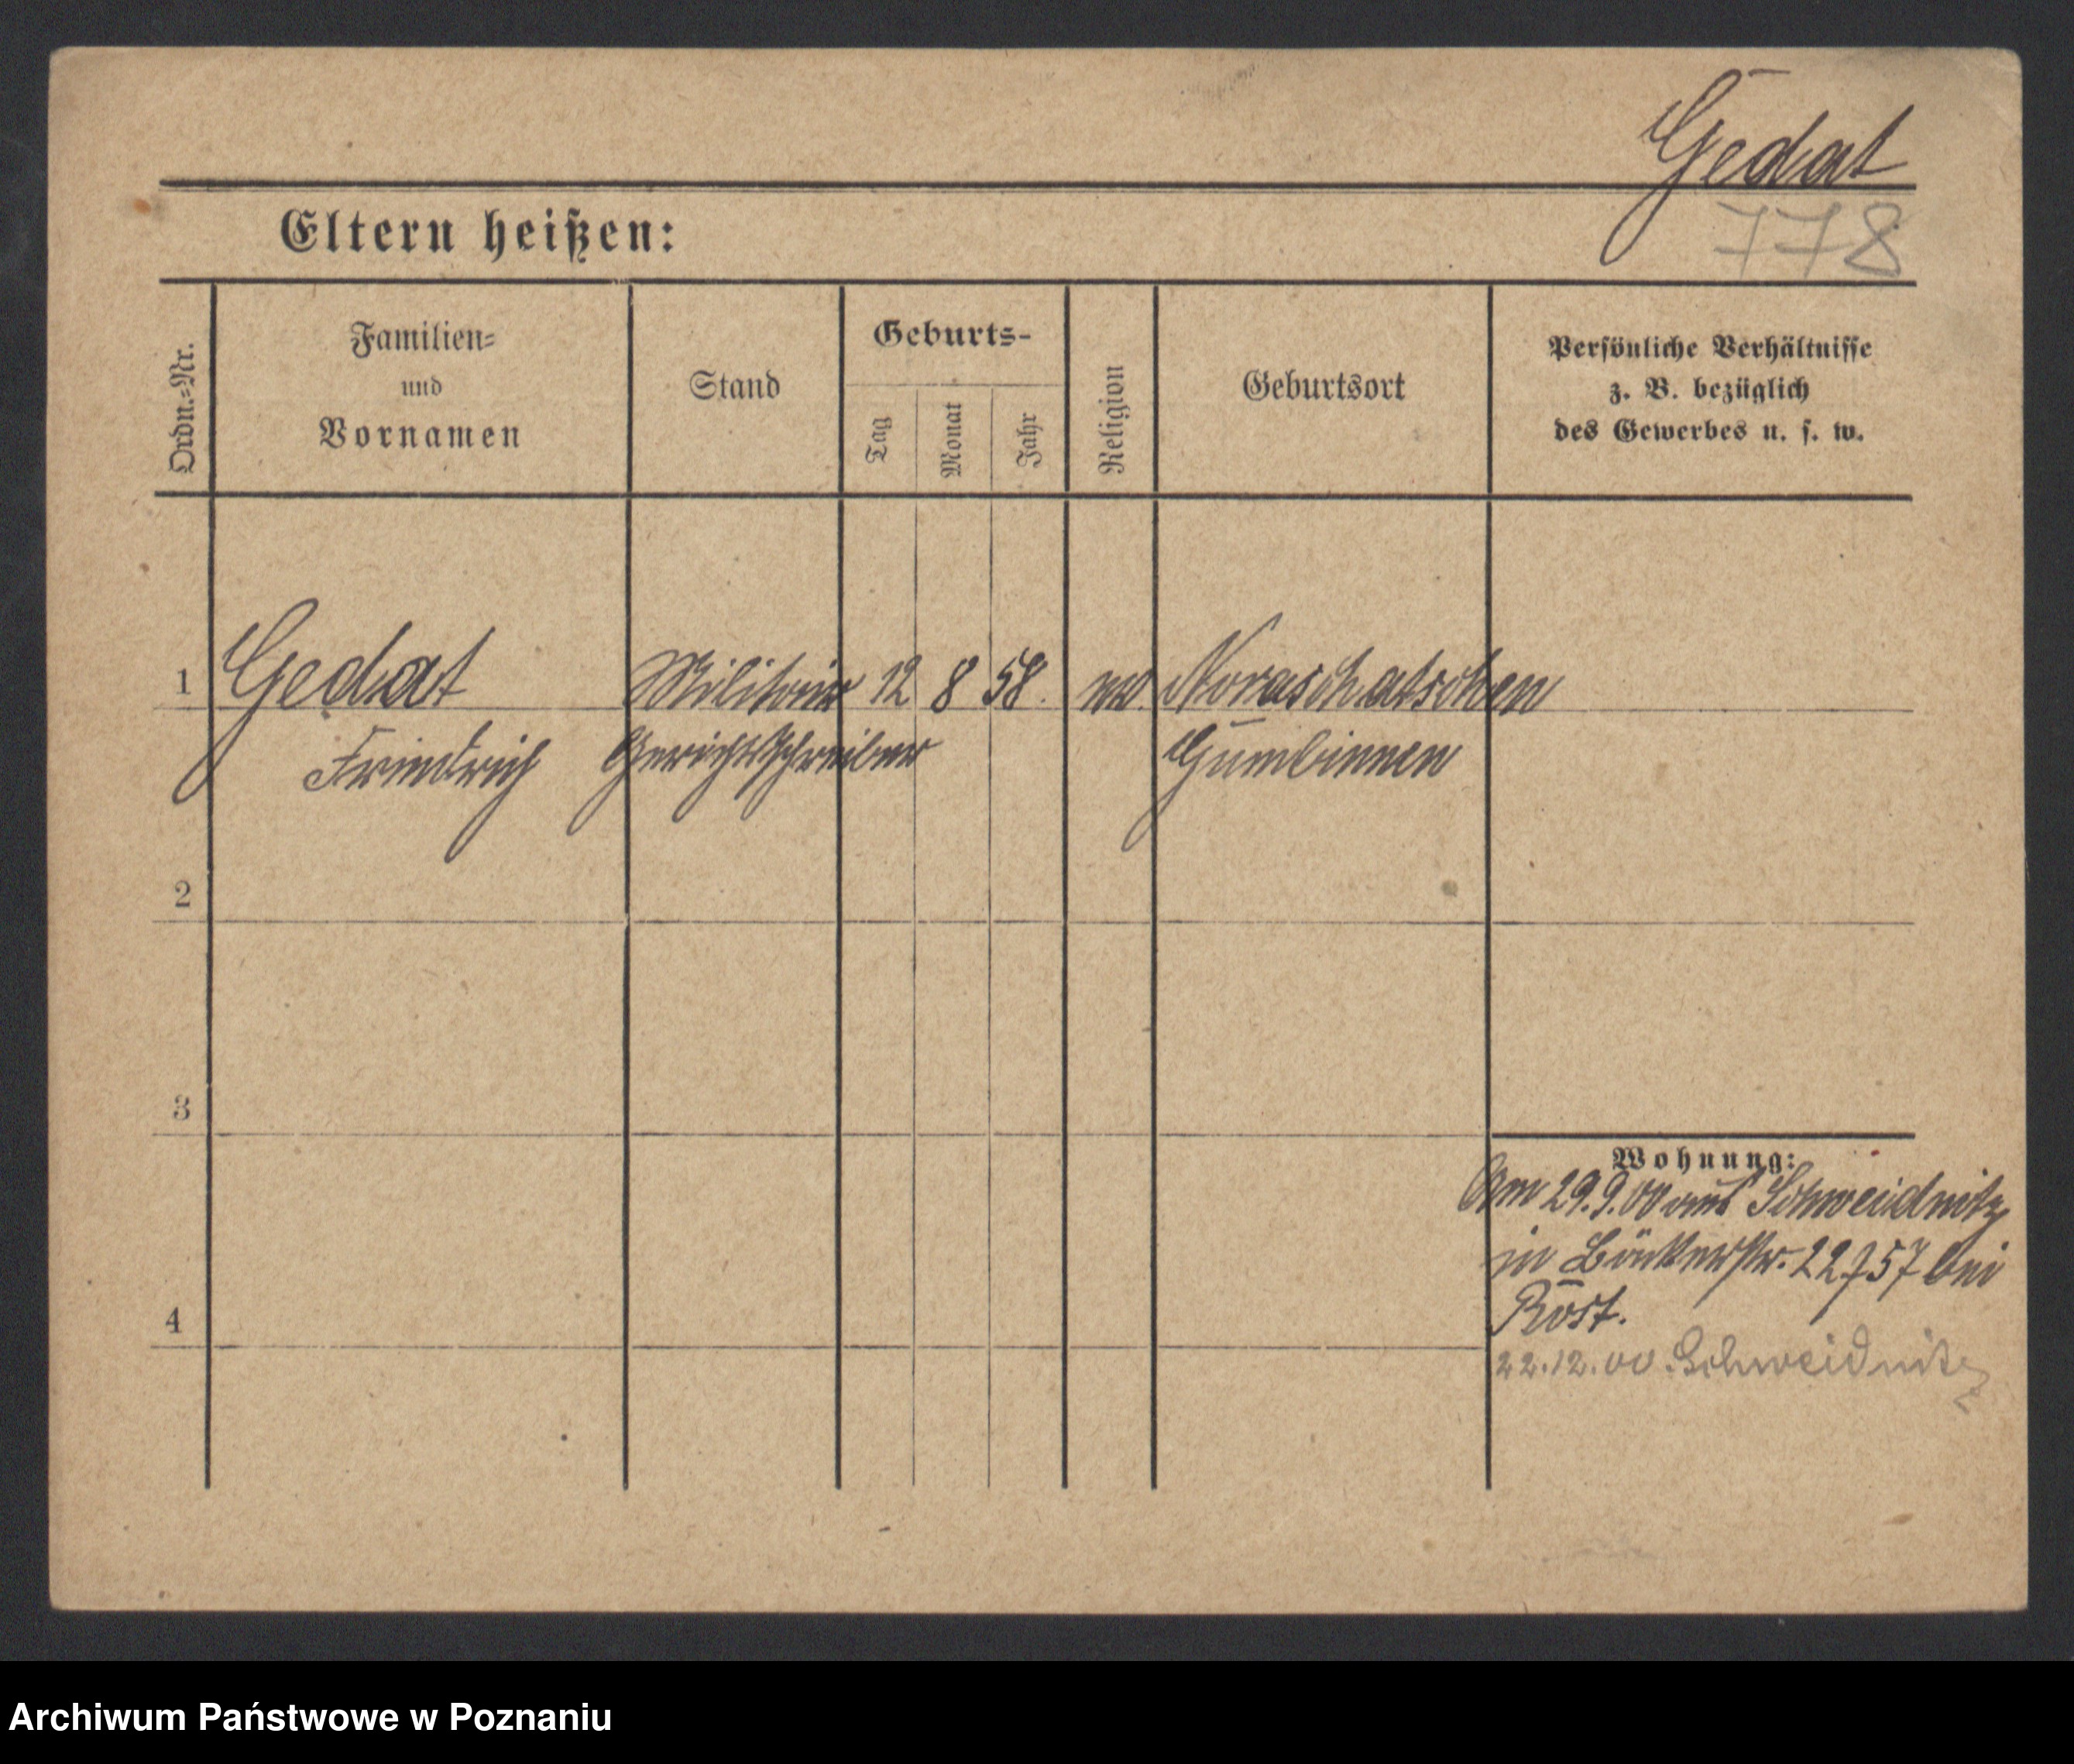 Gedat
778
Eltern heißen:
Ordn.-Nr.
Familien-
und
Vornamen
Stand
Geburts-
Tag
Monat
Jahr
Religion
Geburtsort
Persönliche Verhältnisse
z. B. bezüglich
des Gewerbes u. s. w.
1 Gedat Militair 12 8 58. ev. Noraschatschen
Friedrich Gerichtsschreiber Gumbinnen
2
3
Wohnung:
Am 29.9.00 aus Schweidnitz
in Bäckerstr. 22 bei
Rost.
4
22.12.00. Schweidnitz
Archiwum Państwowe w Poznaniu